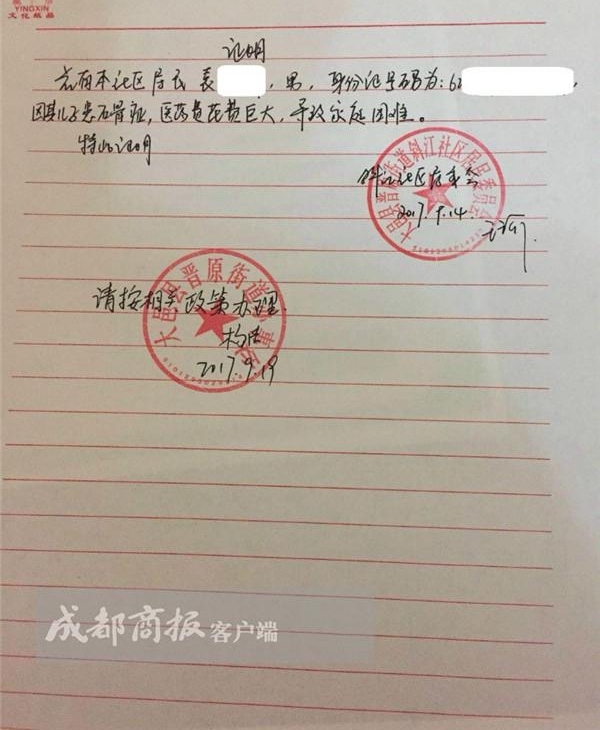 YINGXIN
文化纸品
证明
兹有本社区居民袁
，男，身份证号码为：62
因其儿子患石骨症，医药费花费巨大，导致家庭困难。
特此证明
大邑县晋原街道斜江社区居民委员会
斜江社区居委会
2017.9.14
大邑县晋原街道
请按相关政策办理.
2017.9.19
成都商报客户端